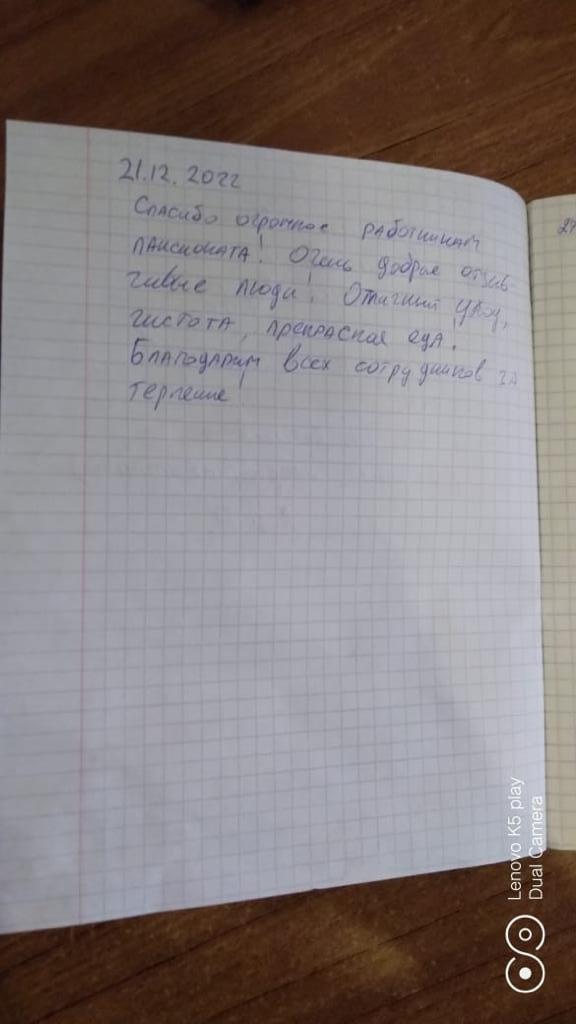 21.12.2022
Спасибо огромное работникам
пансионата! Очень добрые отзыв-
чивые люди! Отличный уход,
чистота, прекрасная еда.
Благодарим всех сотрудников за
терпение!
Lenovo K5 play
Dual Camera